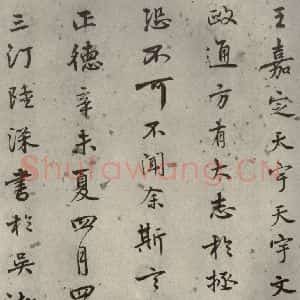 王嘉定天宇天宇文
政通方有大志於極
恐不可不闻余斯言
正德辛未夏四月四
三汀陸深書於吴
Shufawang.CN